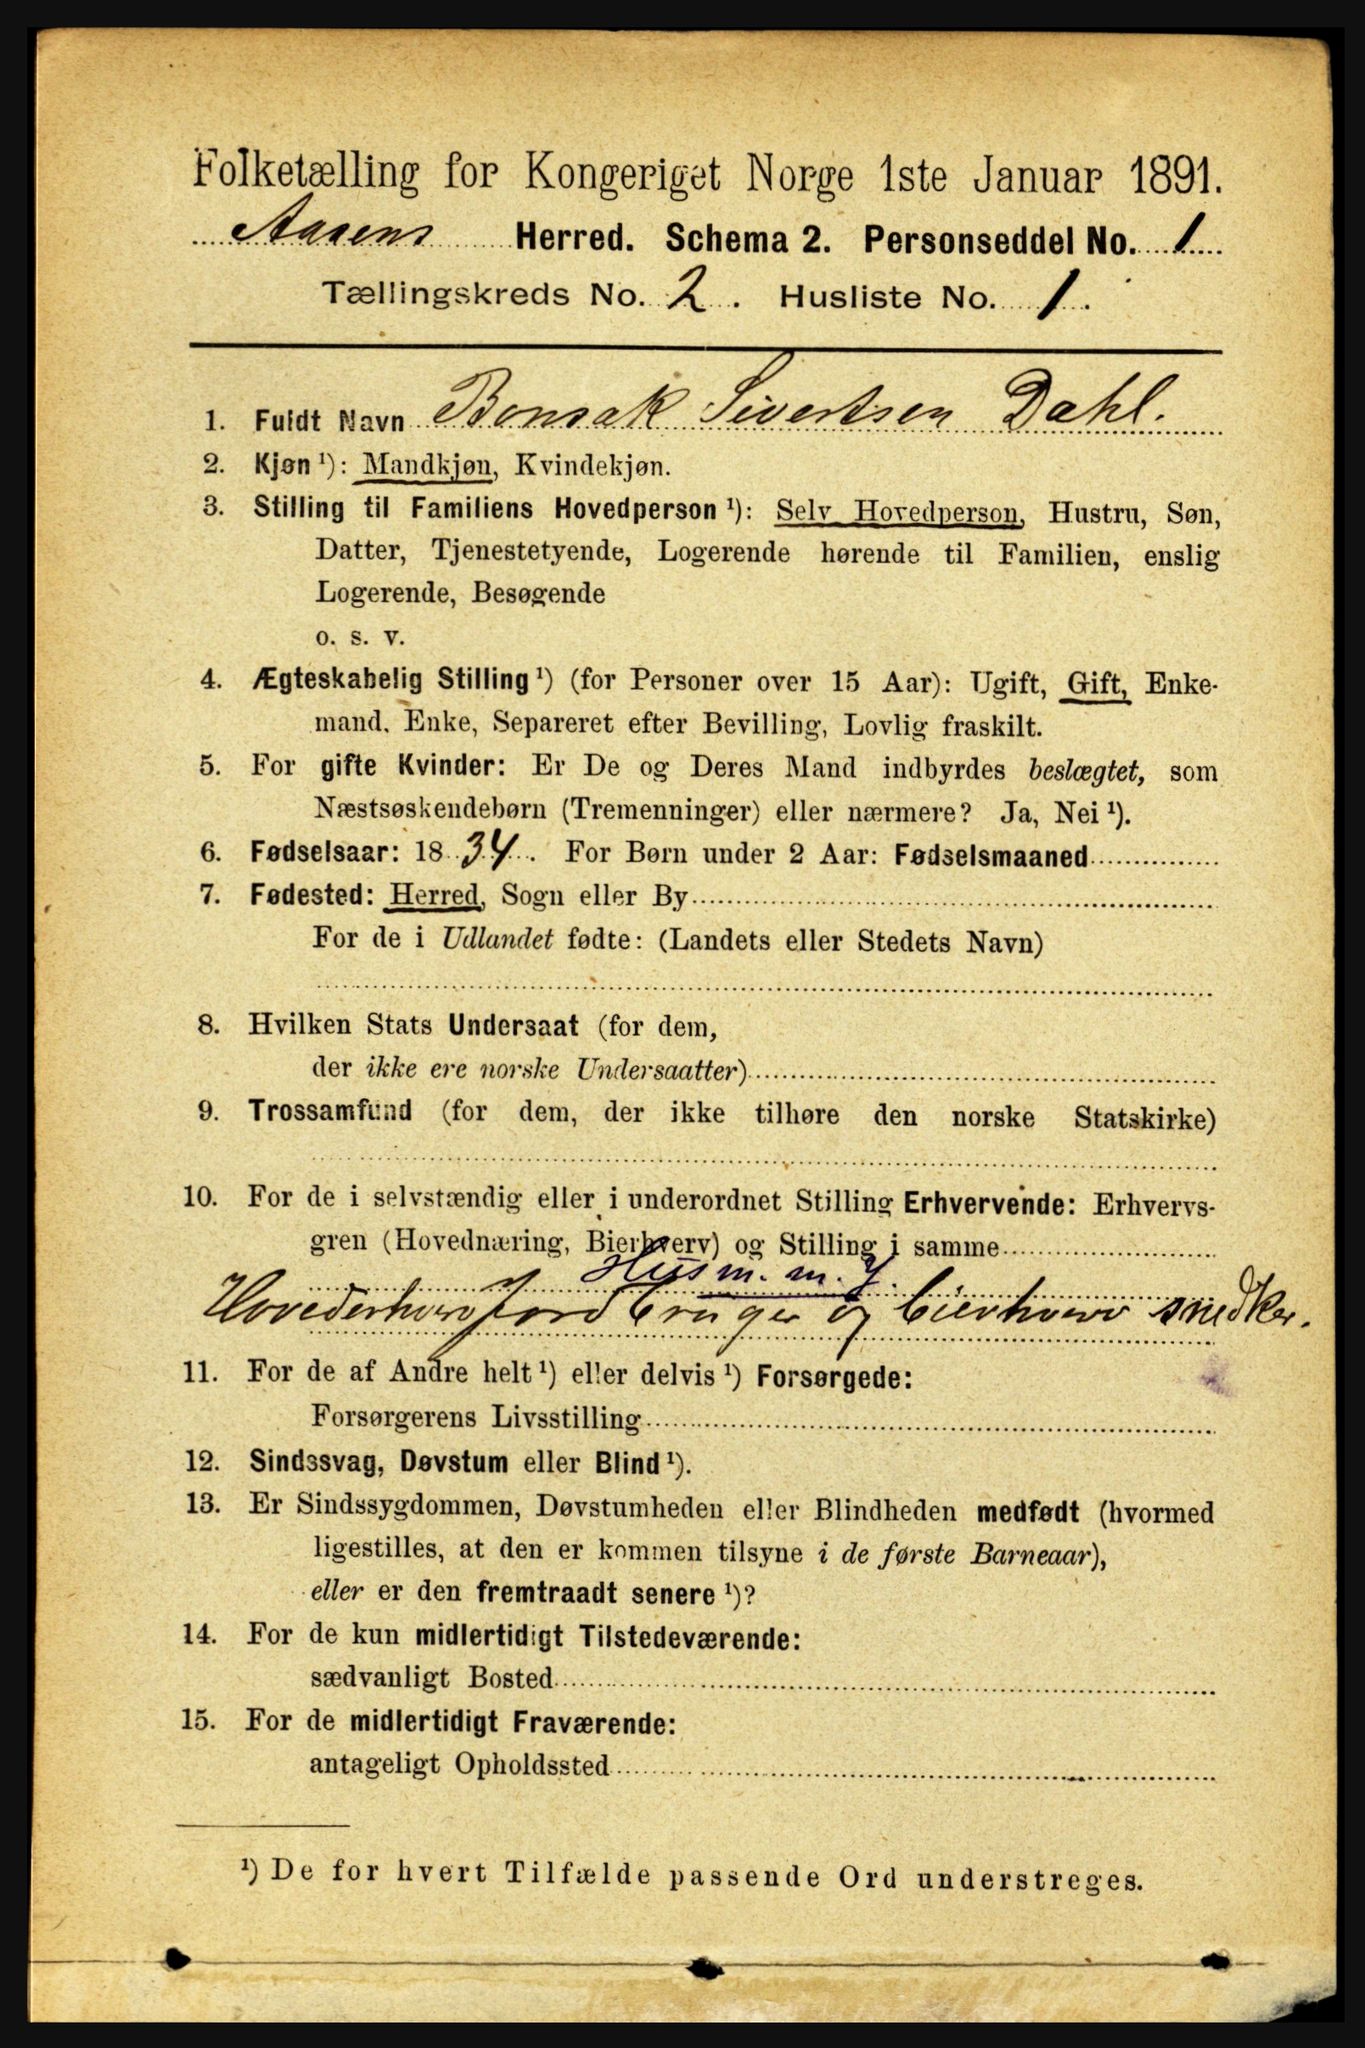 Folketælling for Kongeriget Norge 1ste Januar 1891.
Aasens Herred. Schema 2. Personseddel No. 1
Tællingskreds No. 2. Husliste No. 1.
1. Fuldt Navn Bensak Sivertsen Dahl.
2. Kjøn ¹): Mandkjøn, Kvindekjøn.
3. Stilling til Familiens Hovedperson ¹): Selv Hovedperson, Hustru, Søn,
Datter, Tjenestetyende, Logerende hørende til Familien, enslig
Logerende, Besøgende
o. s. v.
4. Ægteskabelig Stilling ¹) (for Personer over 15 Aar): Ugift, Gift, Enke-
mand, Enke, Separeret efter Bevilling, Lovlig fraskilt.
5. For gifte Kvinder: Er De og Deres Mand indbyrdes beslægtet, som
Næstsøskendebørn (Tremenninger) eller nærmere? Ja, Nei ¹).
6. Fødselsaar: 1834. For Børn under 2 Aar: Fødselsmaaned
7. Fødested: Herred, Sogn eller By
For de i Udlandet fødte: (Landets eller Stedets Navn)
8. Hvilken Stats Undersaat (for dem,
der ikke ere norske Undersaatter)
9. Trossamfund (for dem, der ikke tilhøre den norske Statskirke)
10. For de i selvstændig eller i underordnet Stilling Erhvervende: Erhvervs-
gren (Hovednæring, Bierhverv) og Stilling i samme
Husm. m. J.
Hovederhverv jordbruger og bierhverv snedker.
11. For de af Andre helt ¹) eller delvis ¹) Forsørgede:
Forsørgerens Livsstilling
12. Sindssvag, Døvstum eller Blind ¹).
13. Er Sindssygdommen, Døvstumheden eller Blindheden medfødt (hvormed
ligestilles, at den er kommen tilsyne i de første Barneaar),
eller er den fremtraadt senere ¹)?
14. For de kun midlertidigt Tilstedeværende:
sædvanligt Bosted
15. For de midlertidigt Fraværende:
antageligt Opholdssted
¹) De for hvert Tilfælde passende Ord understreges.